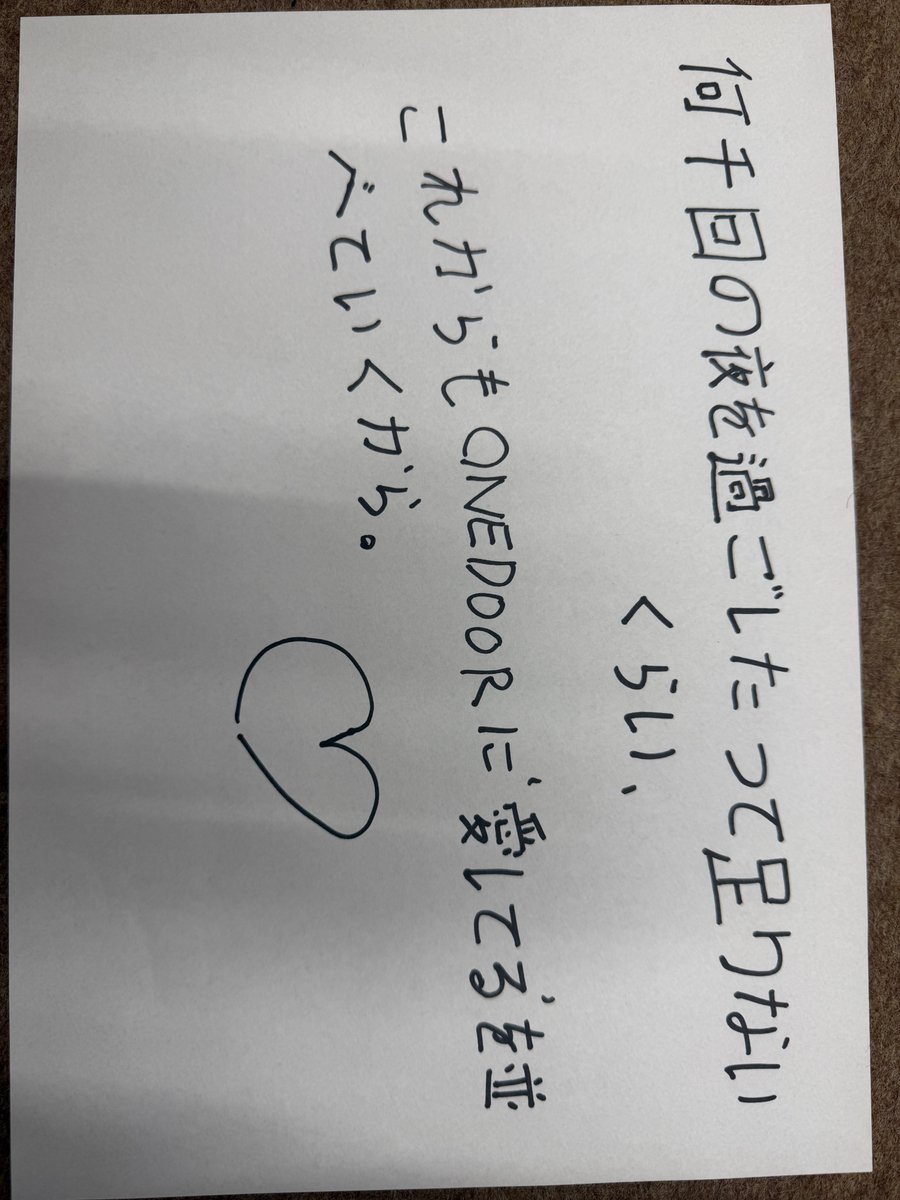 何千回の夜を過ごしたって足りない
くらい、
これからもONEDOORに"愛してる"を並
べていくから。